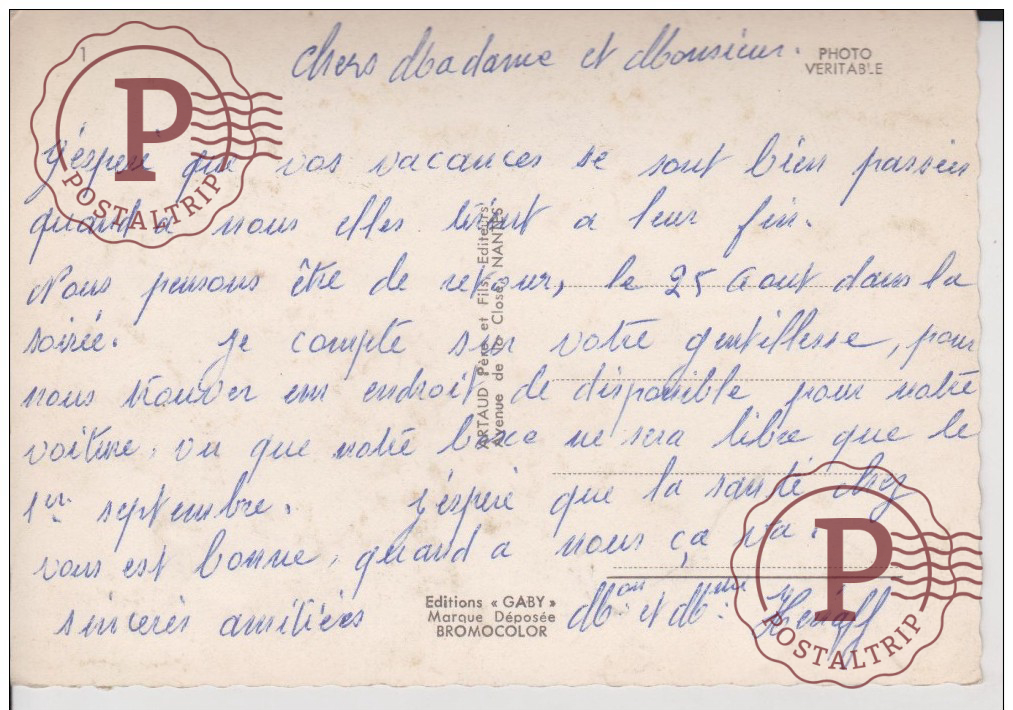 1
Chers Madame et Monsieur.
PHOTO
VERITABLE
J'éspère que vos vacances se sont bien passées
quand a nous elles tirent a leur fin.
Nous pensons être de retour, le 25 Aout dans la
soirée. Je compte sur votre gentillesse, pour
nous trouver un endroit de disponible pour notre
voiture, vu que notre boxe ne sera libre que le
1er septembre. J'éspère que la santé chez
vous est bonne, quand a nous ça va.
sincères amitiés
Mon et Mme:
ARTAUD Père et Fils, Editeurs
Avenue de la Close, NANTES
Editions « GABY »
Marque Déposée
BROMOCOLOR
P
POSTALTRIP
P
POSTALTRIP